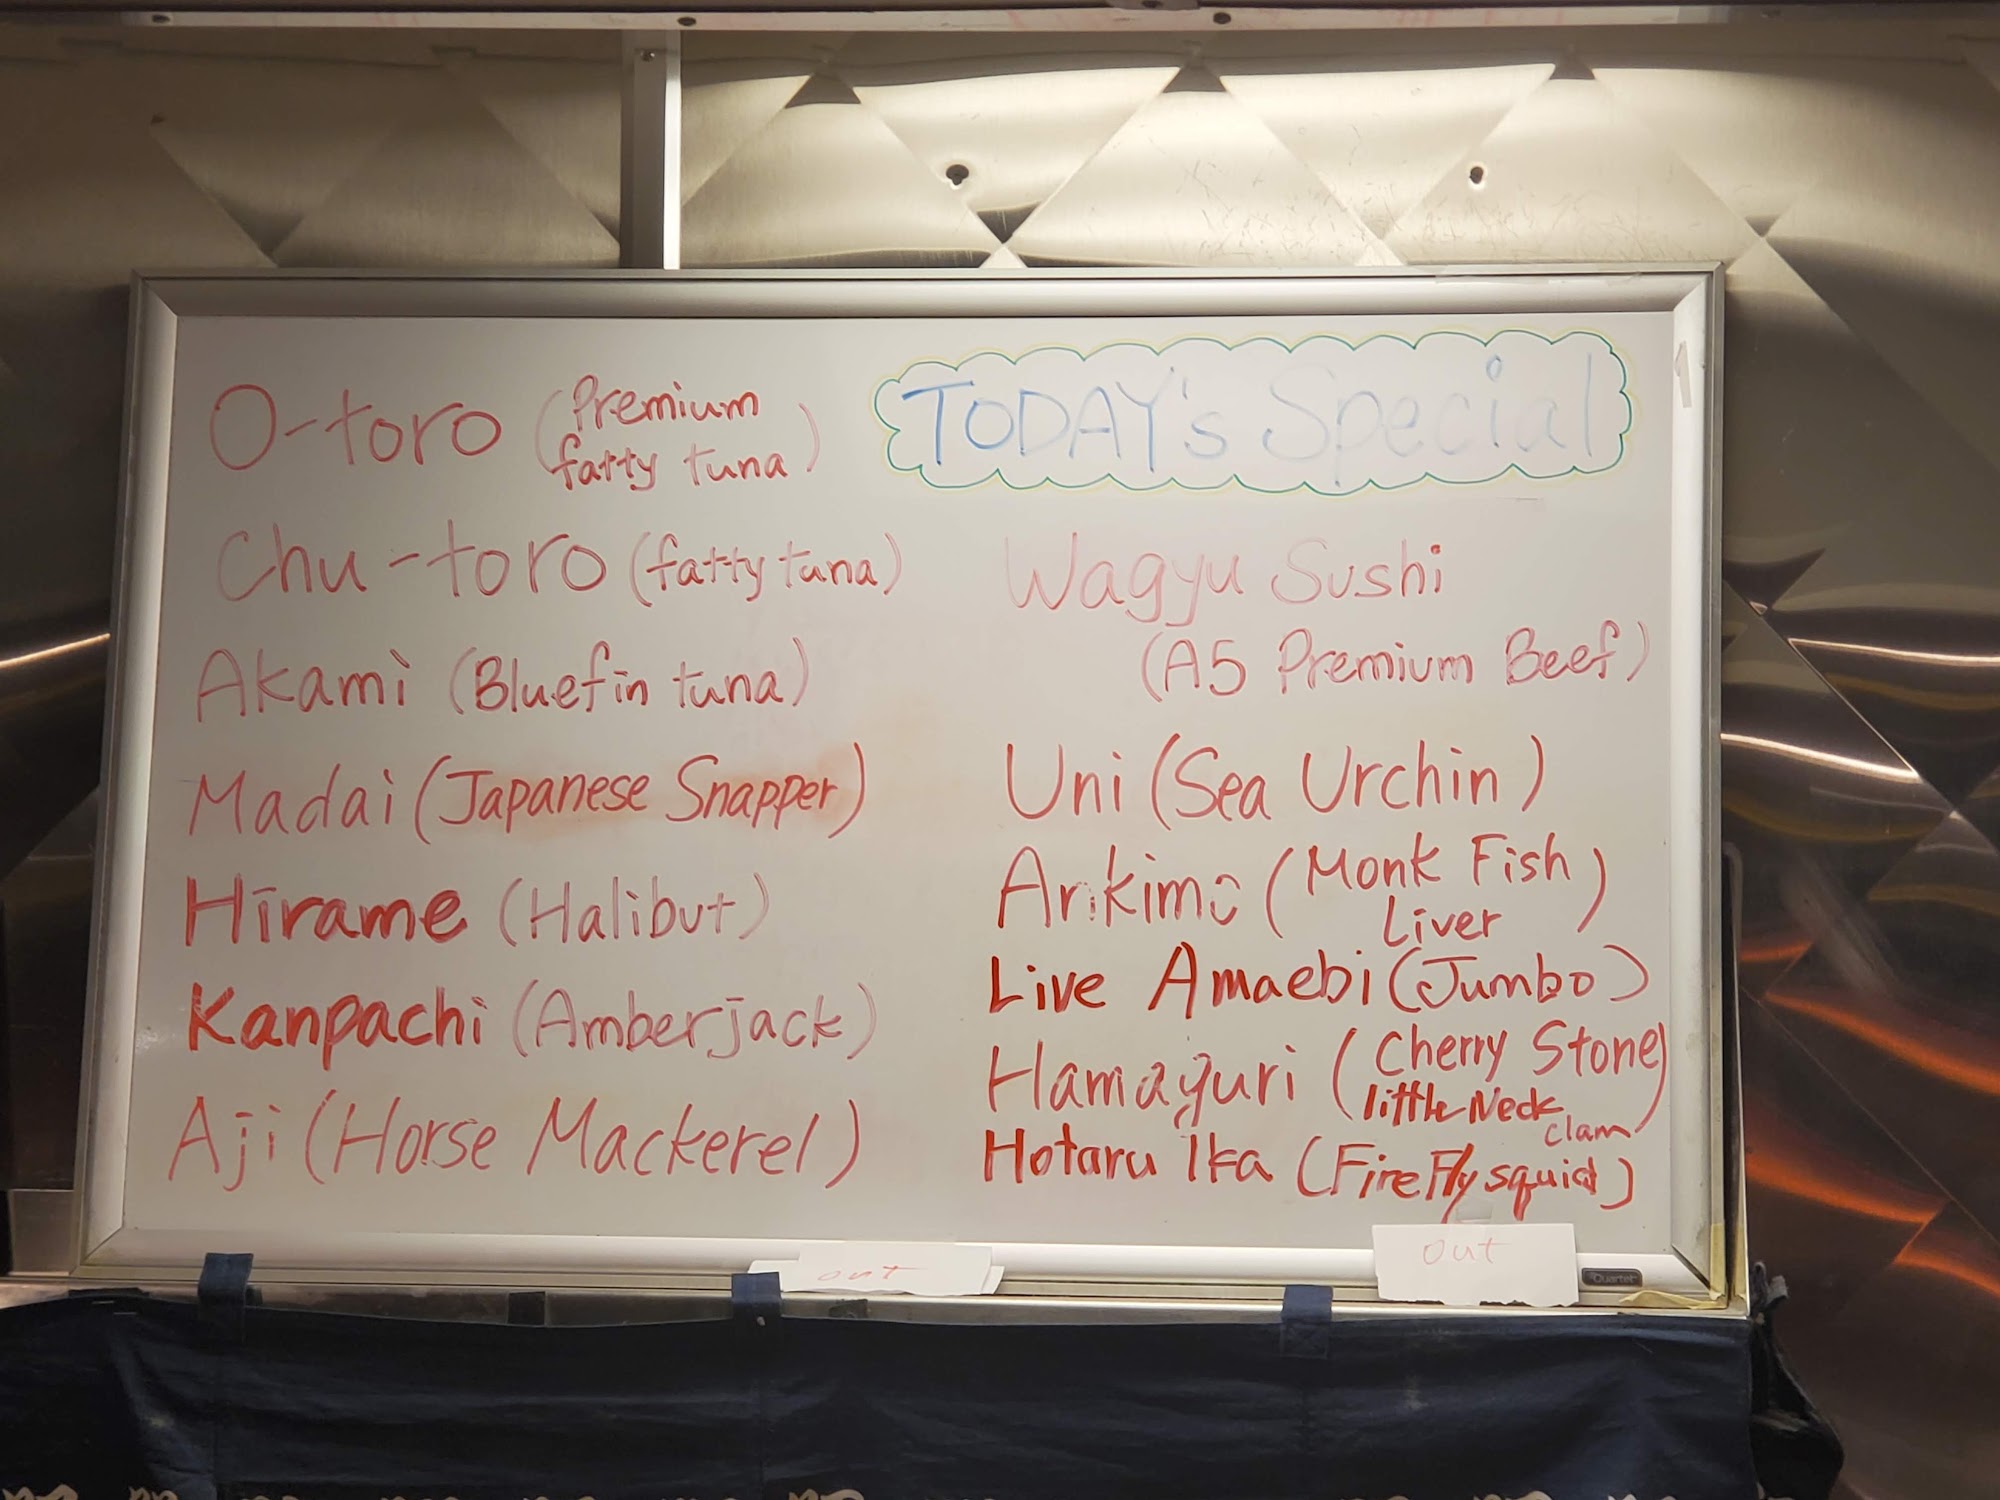 O-toro (Premium
fatty tuna)
Chu-toro (fatty tuna)
Akami (Bluefin tuna)
Madai (Japanese Snapper)
Hirame (Halibut)
Kanpachi (Amberjack)
Aji (Horse Mackerel)
TODAY's Special
Wagyu Sushi
(A5 Premium Beef)
Uni (Sea Urchin)
Ankimo (Monk Fish
Liver)
Live Amaebi (Jumbo)
Hamaguri (Cherry Stone)
little Neck
clam
Hotaru Ika (FireFly squid)
out
out
Quartet